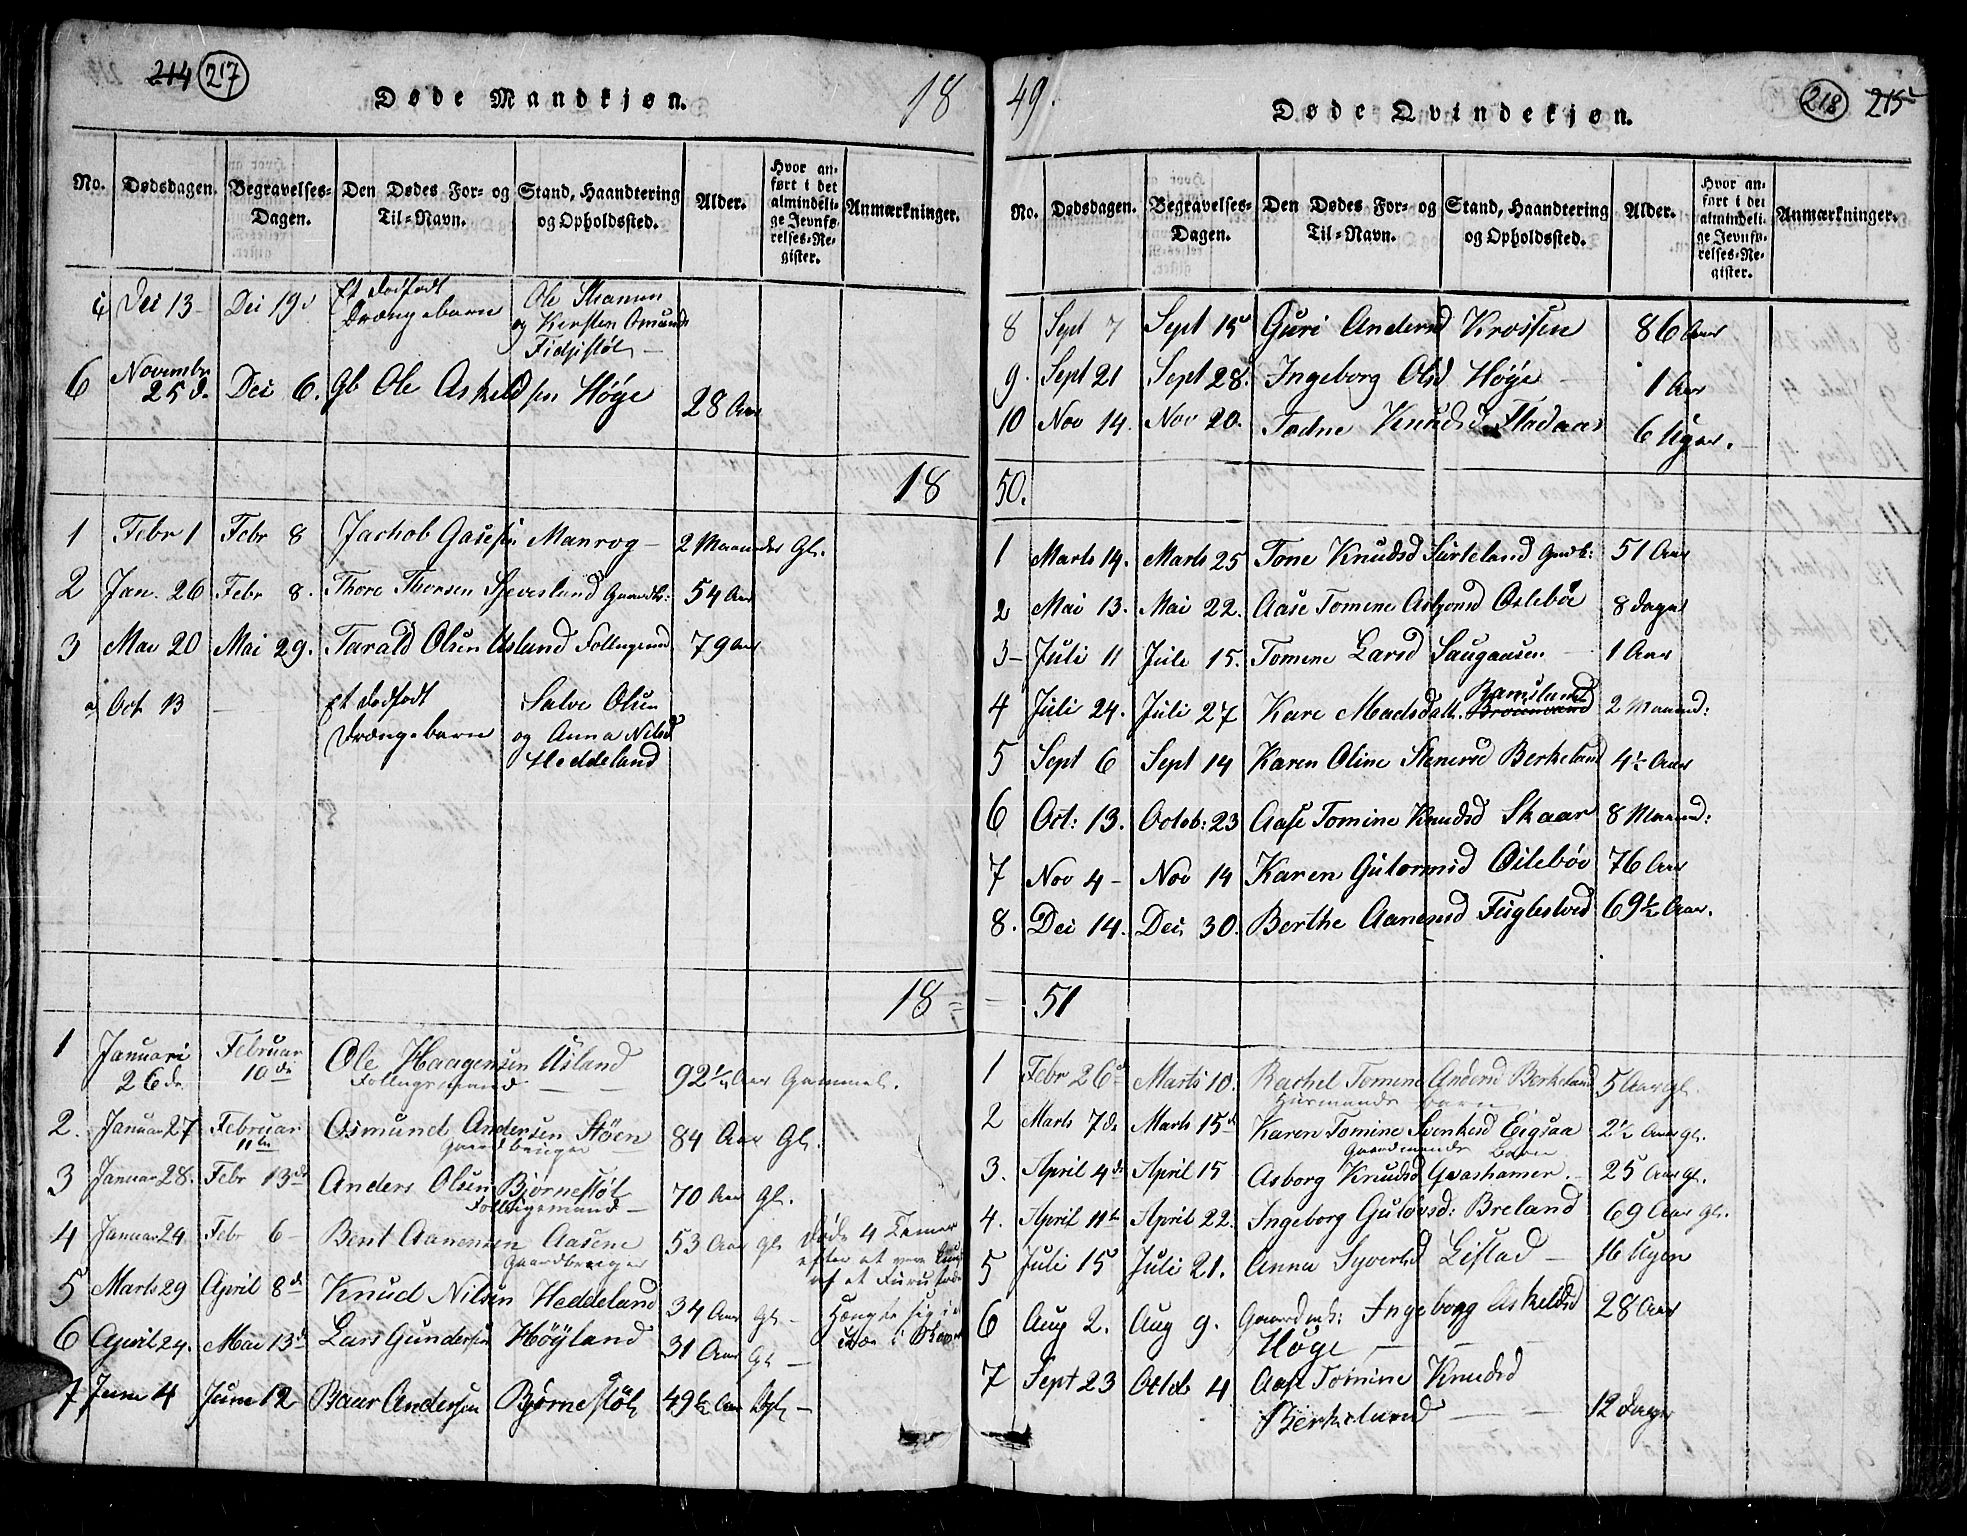 214 217
Døde Mandkjøn.
18
No. Dødsdagen. Begravelses-Dagen. Den Dødes For- og Til-Navn. Stand, Haandtering og Opholdssted. Alder. Hvor anført i det almindelige Jevnførelses-Register. Anmærkninger.
Dei 13 Dei 19 Et dødfødt Drængebarn Ole
og Kersten
6 Novembr 25 d. Dei 6. Gb Ole Askeldsen Høÿe 28 Aar
18
1 Febr 1 Febr 8 Jachob Manrog 2 Maaneder Gl.
2 Jan. 26 Febr 8. Thore Thorsen Gaardb: 54 Aar
3 Mai 20 Mai 29. Tarald Olsen Usland 79 Aar
Oct 13 Et dødfødt Salve Olsen
Drængebarn og Anna Nilsd
Heddeland
18
1 Januari 26 de Februar 10 de Ole Haagensen Usland 92 1/2 Aar Gammel.
2. Januar 27 Februar 11te Osmund Andersen Støen 84 Aar Gl.
Gaardbruger
3 Januar 28. Febr 13de Anders Olsen Bjørnestøl 70 Aar Gl.
4 Januar 24 Febr 6 Bent Aanensen Aasene 53 Aar Gl døde 4 Timer
Gaardbruger efter at være
5 Marts 29 April 8de Knud Nilsen Heddeland 34 Aar Gl
6 April 24. Mai 13de Lars Gundersen Høÿland 31 Aar Gl
7 Juni 4 Juni 12 Baar Andersen Bjørnestøl 49 1/2 Aar Gl
49.
Døde Qvindekjøn.
218 215
No. Dødsdagen. Begravelses-Dagen. Den Dødes For- og Til-Navn. Stand, Haandtering og Opholdssted. Alder. Hvor anført i det almindelige Jevnførelses-Register. Anmærkninger.
8 Sept 7 Sept 15 Guri Andersd Krossen 86 Aar
9. Sept 21 Sept 28. Ingeborg Olsd Høÿe 1 Aar
10 Nov 14. Nov 20. Todne Knudsd Fladaas 6 Uger.
50.
1 Marts 14. Marts 25 Tone Knudsd Surteland 51 Aar
2 Mai 13. Mai 22. Aase Tomine Oslebøe 8 dage
3 Juli 11 Juli 15. Tomine Larsd Saugaasen 1 Aar
4 Juli 24. Juli 27 Kari Madsdatt. Ramsland 2 Maaned:
5 Sept 6 Sept 14 Karen Oline Stenersd Berkeland 4 1/2 Aar
6 Oct: 13. Octob: 23 Aase Tomine Knudsd Skaar 8 Maaned:
7 Nov 4 Nov 14 Karen Gutormsd Oilebøe 76 Aar
8. Dei 14. Dei 30. Berthe Aanensd Fuglestved 69 1/2 Aar.
51
1 Febr 26d Marts 10. Rachel Tomine Andersd Berkeland 5 Aar gl.
Husmands barn
2 Marts 7d Marts 15d Karen Tomine Svenkesd Eigsaa 2 1/2 Aar gl.
Gaardmands barn
3. April 4de April 15 Asborg Knudsd Qvashamer 25 Aar gl.
4. April 11te April 22. Ingeborg Gulovsd: Breland 69 Aar gl.
5 Juli 15 Juli 21. Anna Syvertsd Listad 16 Ugen
6 Aug 2. Aug 9. Ingeborg Askeldsd 28 Aar
Høÿe
7 Sept 23 Octob 4 Aase Tomine Knudsd
Berkeland 12 dage